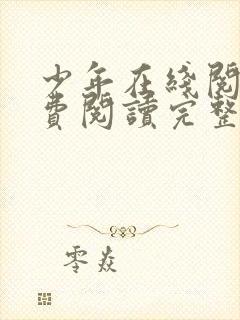 少年在綫閱
費閱讀完整
零焱